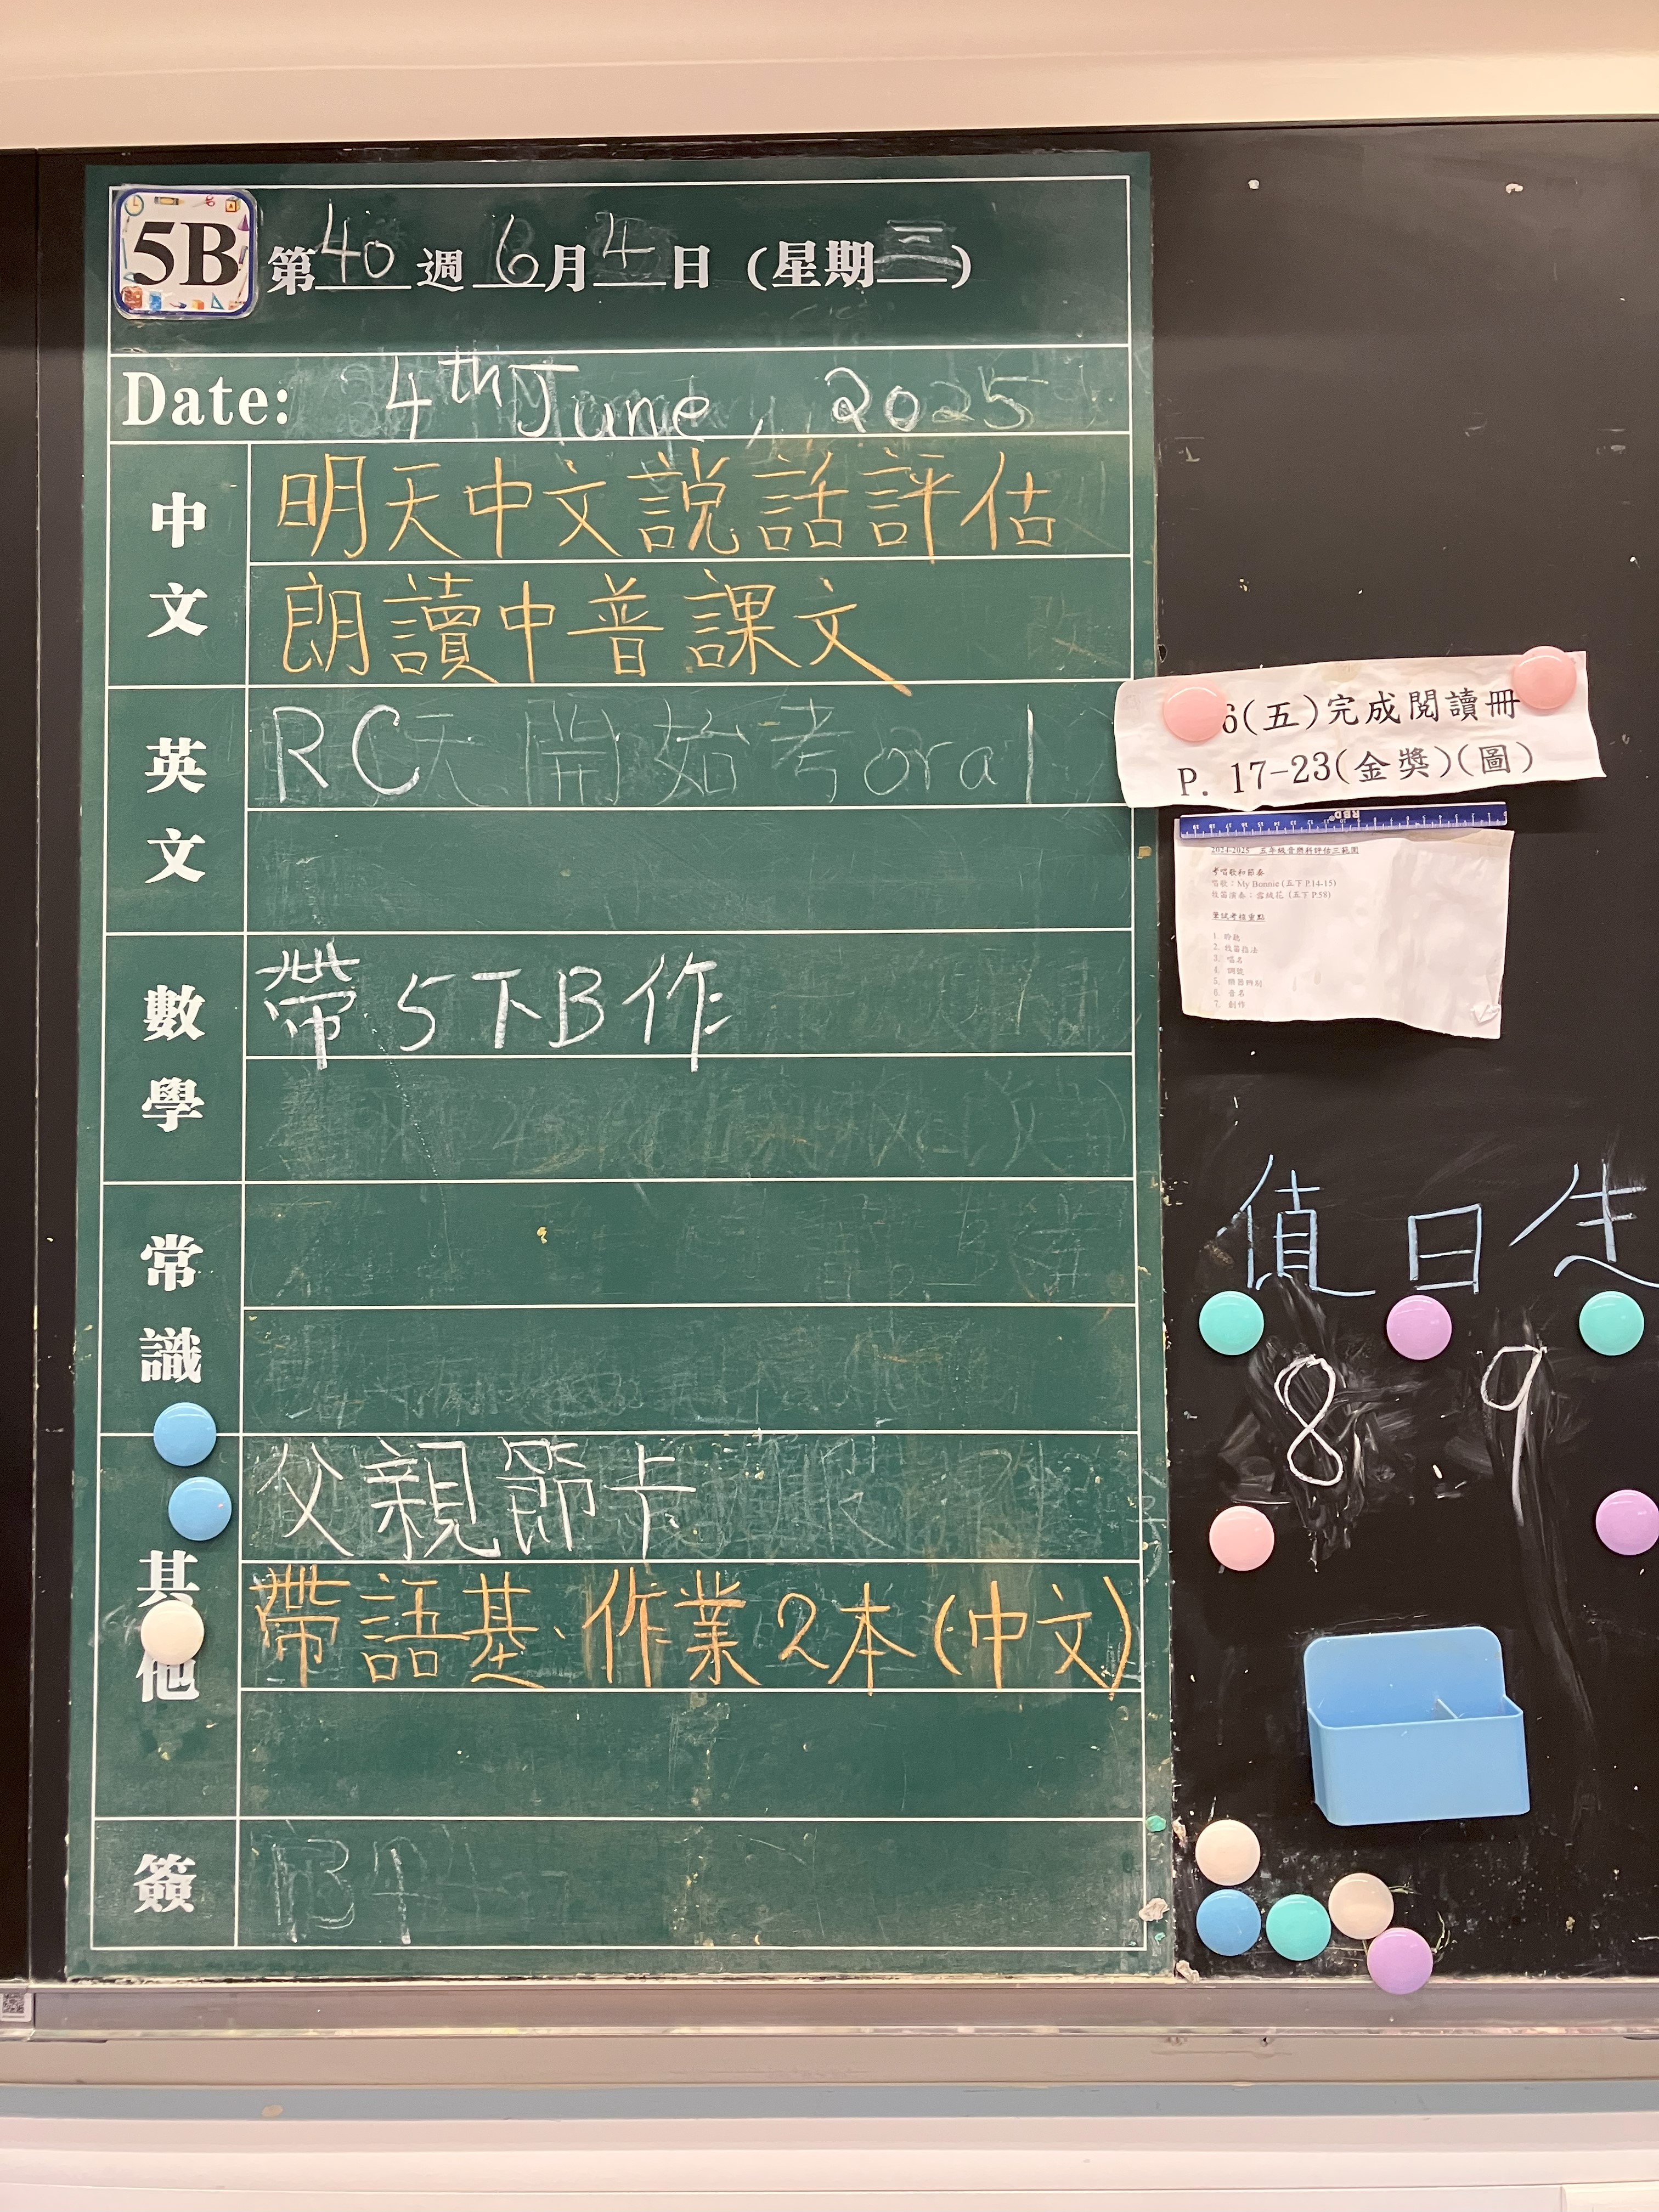 5B 第40週 6月4日 (星期三)
Date: 4th June, 2025
中文
明天中文說話評估
朗讀中普課文
英文
RC天開始考oral
數學
帶5下B作
常識
其他
父親節卡
帶語基、作業2本(中文)
簽
6(五)完成閱讀冊
P. 17-23(金獎)(圖)
RED
2024-2025 五年級音樂科評估三範圍
考唱歌和節奏
唱歌:My Bonnie (五下 P.14-15)
牧笛演奏:雪絨花 (五下 P.58)
筆試考核重點
1. 聆聽
2. 牧笛指法
3. 唱名
4. 調號
5. 樂器辨別
6. 音名
7. 創作
值日生
8 9